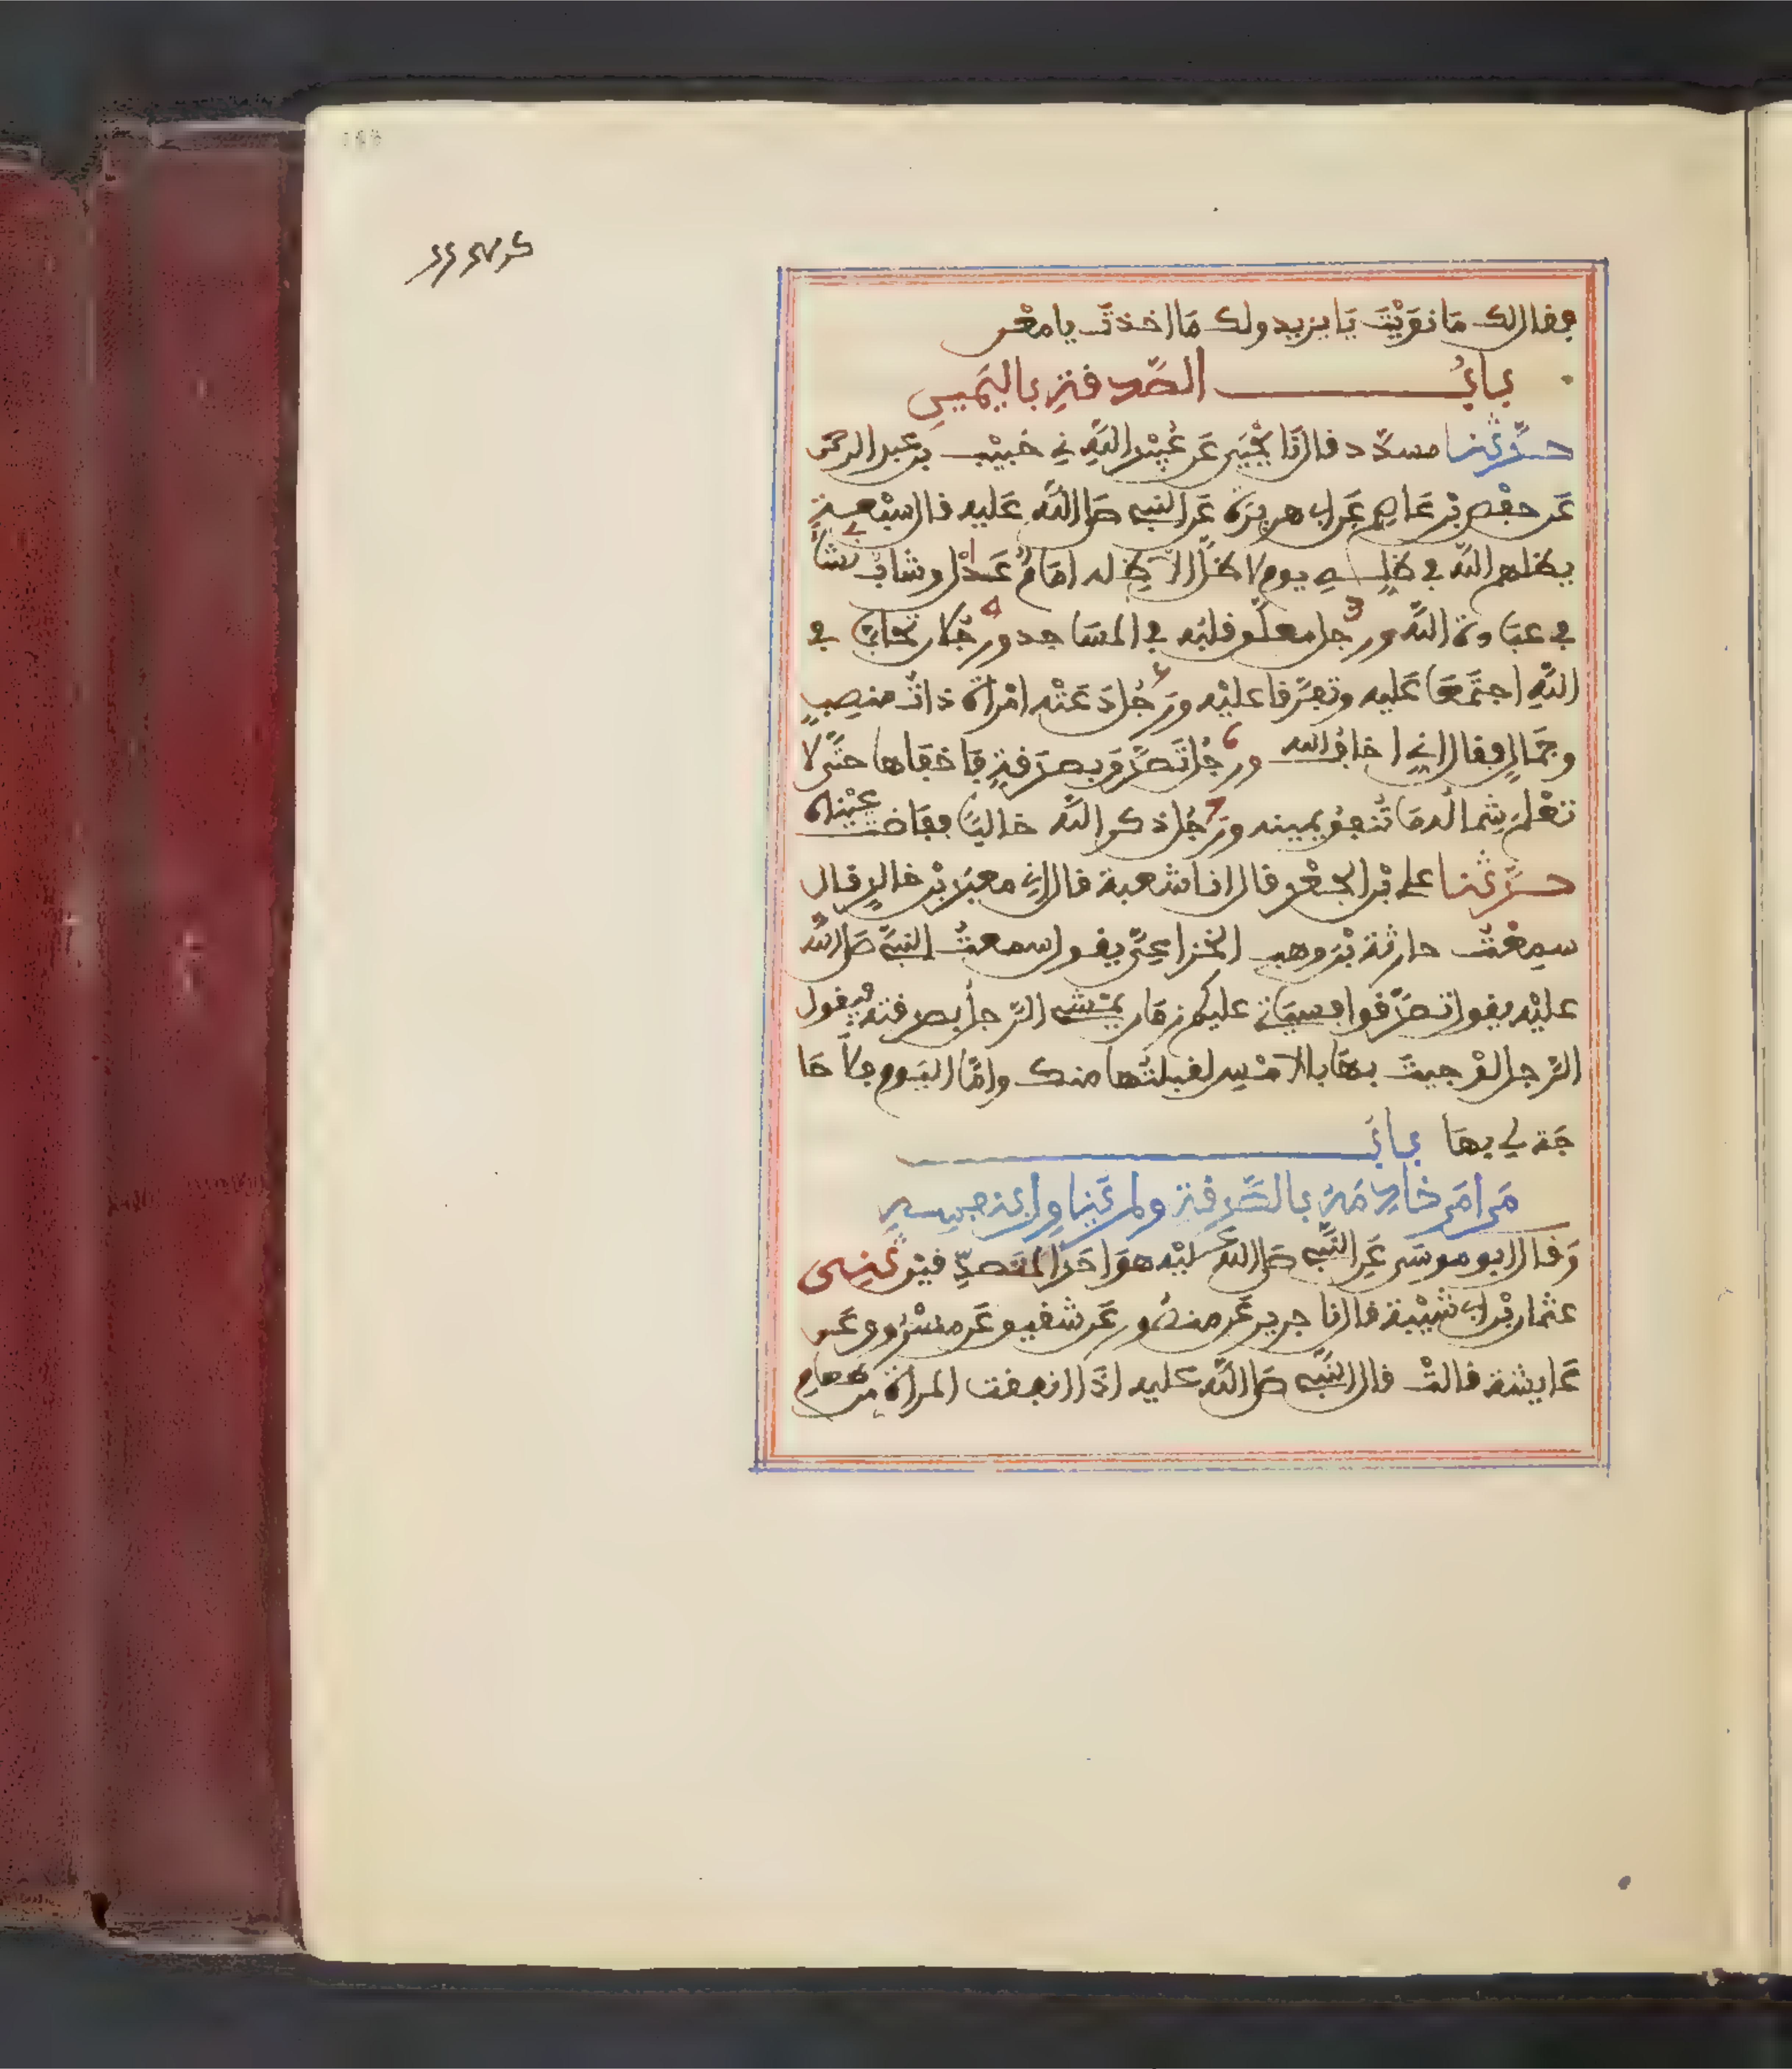 فقال لك مَا نَوَيْتَ يَا يزيد ولك مَا اخذتَ يا معْن
بابُ الصَّدقةِ باليَمِينِ
حدّثنا مسدّد قال نَا يَحْيَى عَن عُبَيْدِ اللَّهِ ني خُبَيْب بن عَبد الرحمن
عَن حفْصِ بْن عَاصِم عَن ابي هريرَة عَن النبي صَلى اللَّه عَليه قال سَبْعـة
يظلهم اللَّه في ظِلِّـهِ يوم لا ظلَّ الاَّ ظِله امَامٌ عَـدْل وشابّ نشأ
في عبَادة اللَّه ورجل معلَّق قلبُه في المسَاجد ورَجُلان تحابَّا في
اللَّهِ اجتَمعَا عَليه وتفرَّقا عليْه ورَجُل دَعَتْه امْرأة ذاتُ منصِبٍ
وجَمالٍ فقال إنيِ اخافُ الله ورجُل تَصدَّق بصدَقةٍ فَاخفَاها حتَّى لا
تعْلمَ شِمالُه مَا تُنفِقُ يمينه ورَجُل ذكر اللَّه خاليًا ففَاضت عَيْنَاه
حدّثنا علي بْن الجَعْد قال انا شعبة قال ني معبَد بْن خالدٍ قال
سمِعْتُ حارثة بْن وهب الخزاعِيَّ يقول سمعتُ النبيَّ صَلى اللَّه
عليْه يقول تصدَّقوا فسيَاتي عليكم زمَان يمْشي الرَّجلُ بصدقته فيقول
الرَّجل لوْ جيتَ بهَا بالامْسِ لقبلتُها منك وامَّا اليَوم فلَا حَا
جَة لي بهَا بابُ
مَن امَر خادِمَهُ بالصَّدقةِ ولم يُنَاوِل بنفسِـهِ
وَقال ابو موسَى عَن النَّبي صَلى اللَّه عَليْه هوَ احَدُ المتَصدِّقيْن ثنى
عثمان بْن ابي شَيْبة قال نا جرير عَن منصُور عَن شقيق عَن مسْرُوق عَن
عَايشة قالتْ قال النَّبي صَلى اللَّه عليه اذَا انفقت المراة من طعام